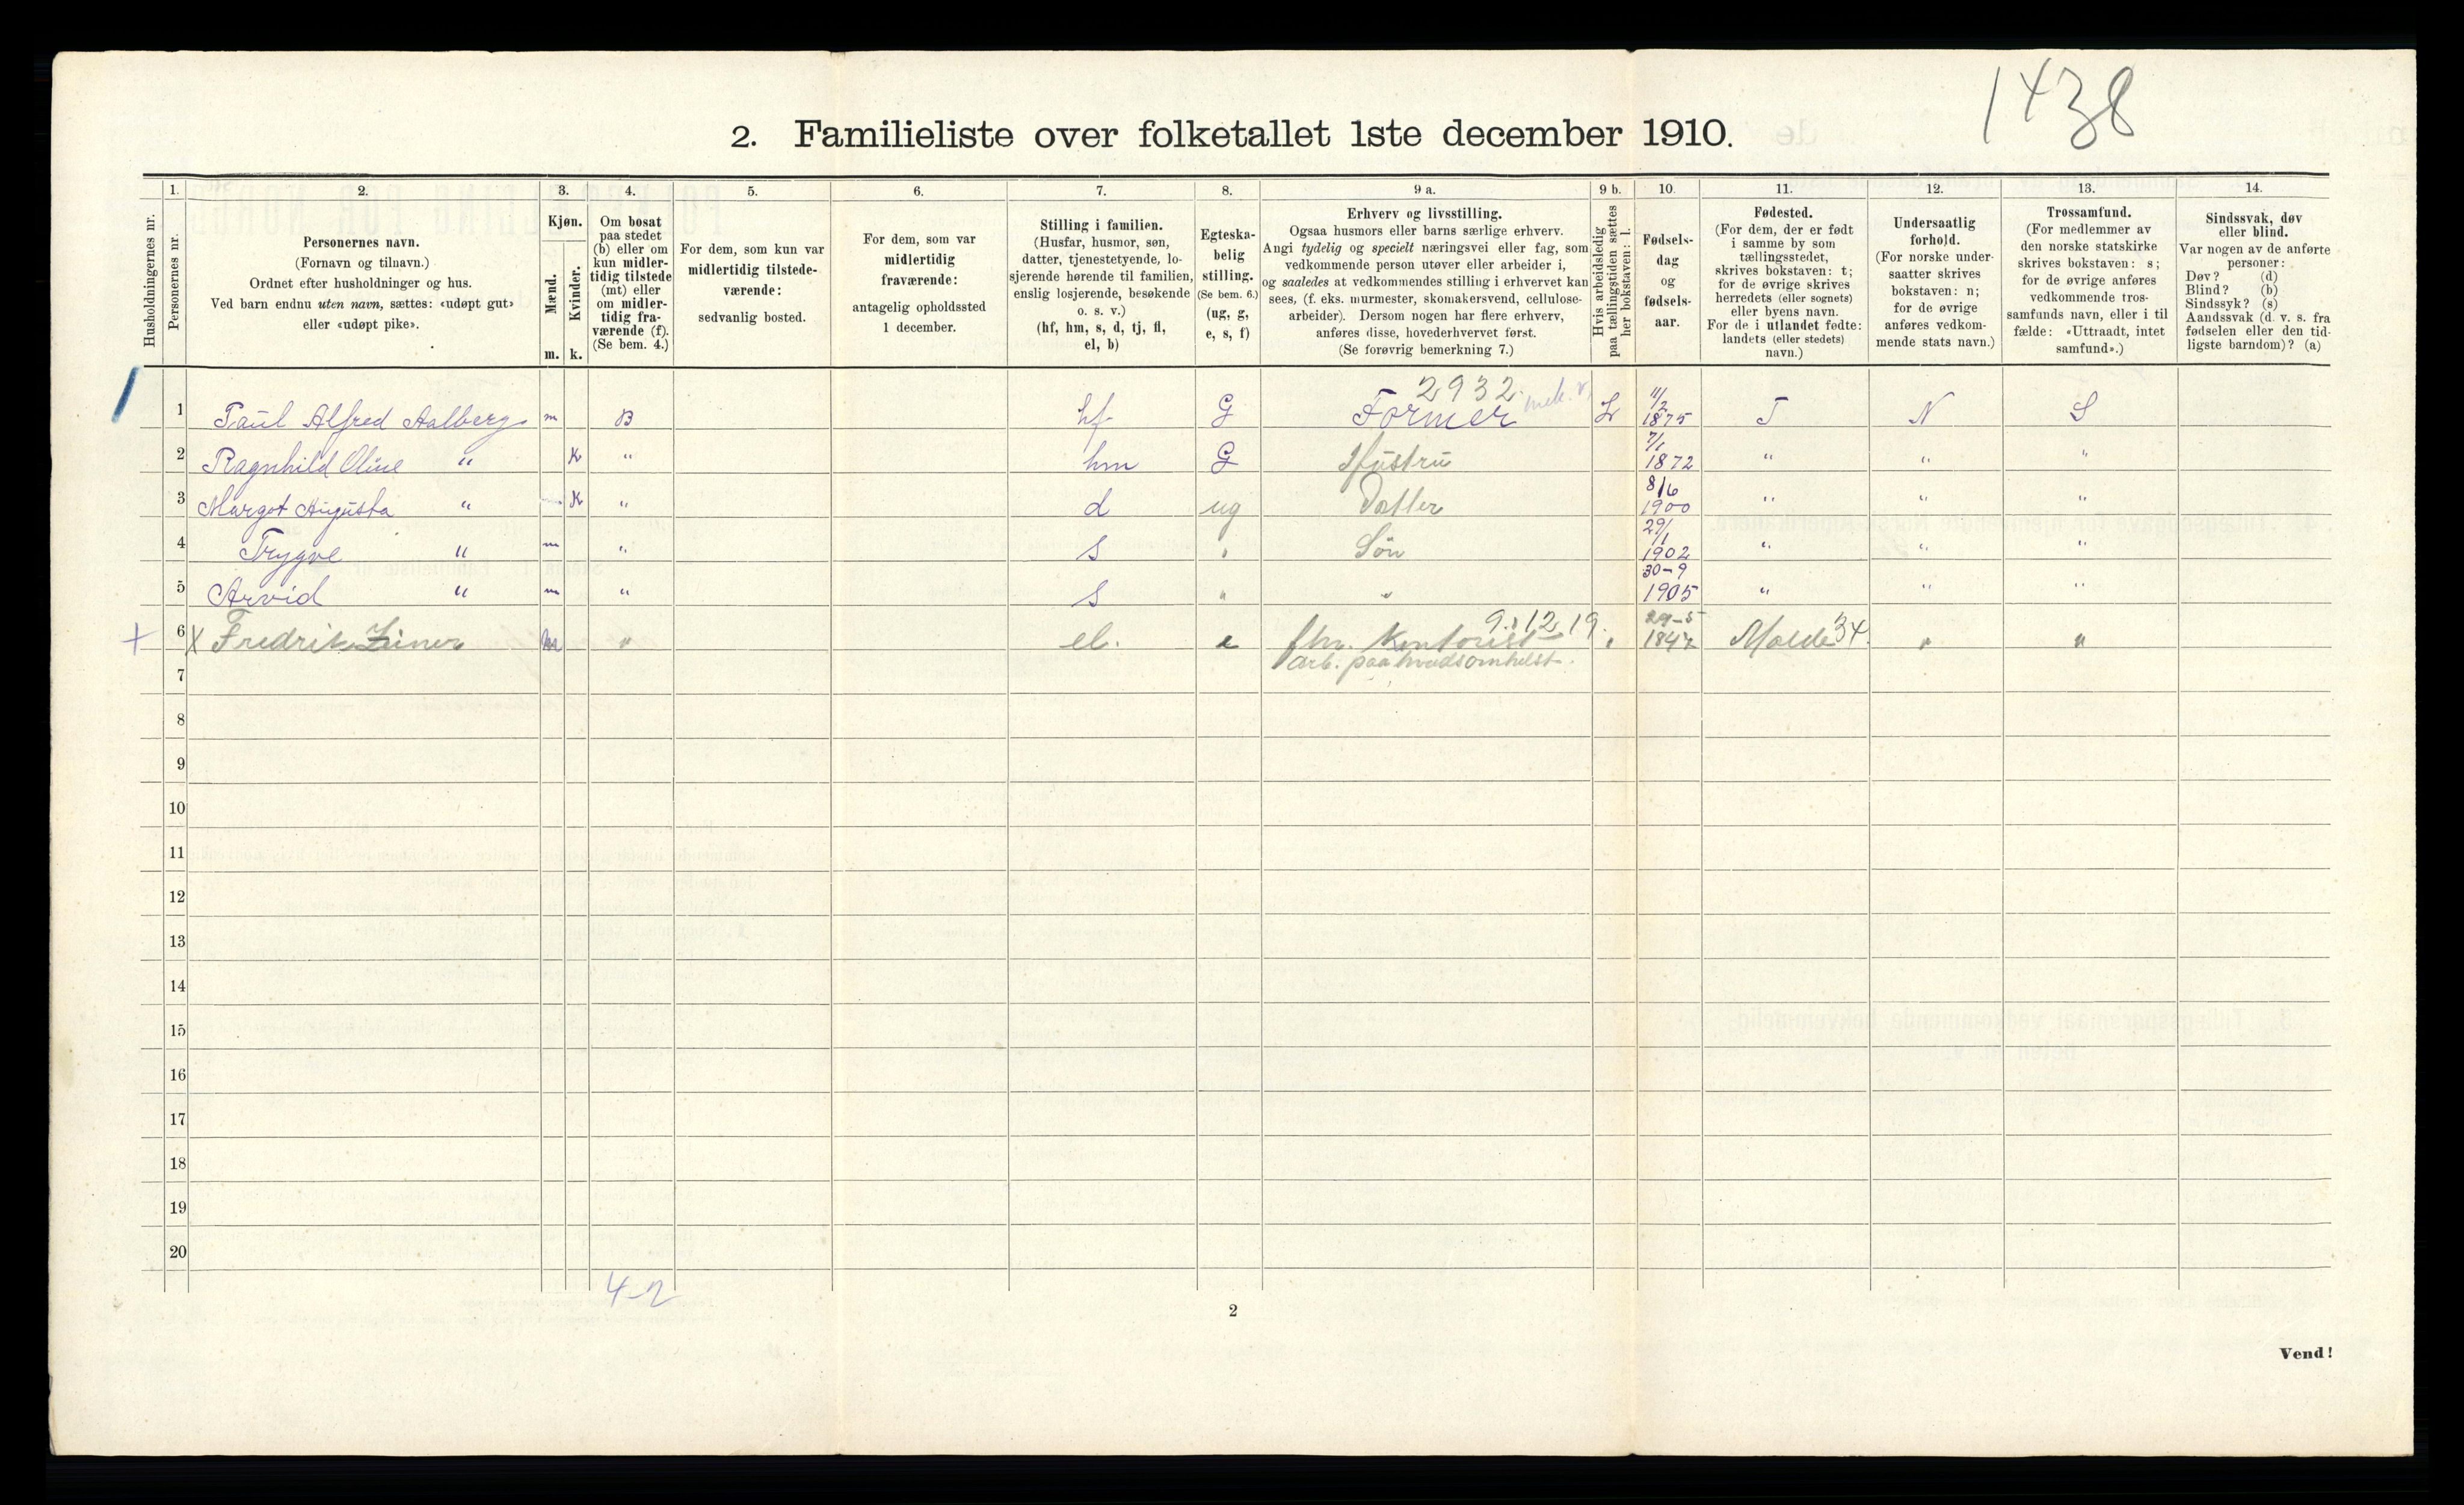 1438
2. Familieliste over folketallet 1ste december 1910.
1. 2. 3. 4. 5. 6. 7. 8. 9 a. 9 b. 10. 11. 12. 13. 14.
Husholdningernes nr.
Personernes nr.
Personernes navn.
(Fornavn og tilnavn.)
Ordnet efter husholdninger og hus.
Ved barn endnu uten navn, sættes: «udøpt gut»
eller «udøpt pike».
Kjøn.
Mænd.
Kvinder.
m. k.
Om bosat
paa stedet
(b) eller om
kun midler-
tidig tilstede
(mt) eller
om midler-
tidig fra-
værende (f).
(Se bem. 4.)
For dem, som kun var
midlertidig tilstede-
værende:
sedvanlig bosted.
For dem, som var
midlertidig
fraværende:
antagelig opholdssted
1 december.
Stilling i familien.
(Husfar, husmor, søn,
datter, tjenestetyende, lo-
sjerende hørende til familien,
enslig losjerende, besøkende
o. s. v.)
(hf, hm, s, d, tj, fl,
el, b)
Egteska-
belig
stilling.
(Se bem. 6.)
(ug, g,
e, s, f)
Erhverv og livsstilling.
Ogsaa husmors eller barns særlige erhverv.
Angi tydelig og specielt næringsvei eller fag, som
vedkommende person utøver eller arbeider i,
og saaledes at vedkommendes stilling i erhvervet kan
sees, (f. eks. murmester, skomakersvend, cellulose-
arbeider). Dersom nogen har flere erhverv,
anføres disse, hovederhvervet først.
(Se forøvrig bemerkning 7.)
Hvis arbeidsledig
paa tællingstiden sættes
her bokstaven: l.
Fødsels-
dag
og
fødsels-
aar.
Fødested.
(For dem, der er født
i samme by som
tællingsstedet,
skrives bokstaven: t;
for de øvrige skrives
herredets (eller sognets)
eller byens navn.
For de i utlandet fødte:
landets (eller stedets)
navn.)
Undersaatlig
forhold.
(For norske under-
saatter skrives
bokstaven: n;
for de øvrige
anføres vedkom-
mende stats navn.)
Trossamfund.
(For medlemmer av
den norske statskirke
skrives bokstaven: s;
for de øvrige anføres
vedkommende tros-
samfunds navn, eller i til
fælde: «Uttraadt, intet
samfund».)
Sindssvak, døv
eller blind.
Var nogen av de anførte
personer:
Døv? (d)
Blind? (b)
Sindssyk? (s)
Aandssvak (d. v. s. fra
fødselen eller den tid-
ligste barndom)? (a)
1 2932 mek. v.
1 Paul Alfred Aalberg m B hf G Former L 11/2 1875 T N S
2 Ragnhild Oline " K " hm G Hustru 7/1 1872 " " "
3 Margot Augusta " K " d ug Datter 8/6 1900 " " "
4 Trygve " m " S " Sön 29/1 1902 " " "
5 Arvid " m " S " " 30-9 1905 " " "
9.12.19.
+ 6 X Fredrik m " el. e fhv. Kontorist " 29-5 1847 Molde 34. " "
7 arb. paa hvadsomhelst.
8
9
10
11
12
13
14
15
16
17
18
19
20
4-2
2
Vend!